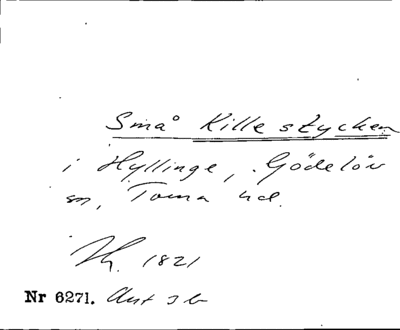 Små Killestycken
i Hyllinge, Gödelöv
sn, Torna hd.
1821
Nr 6271.